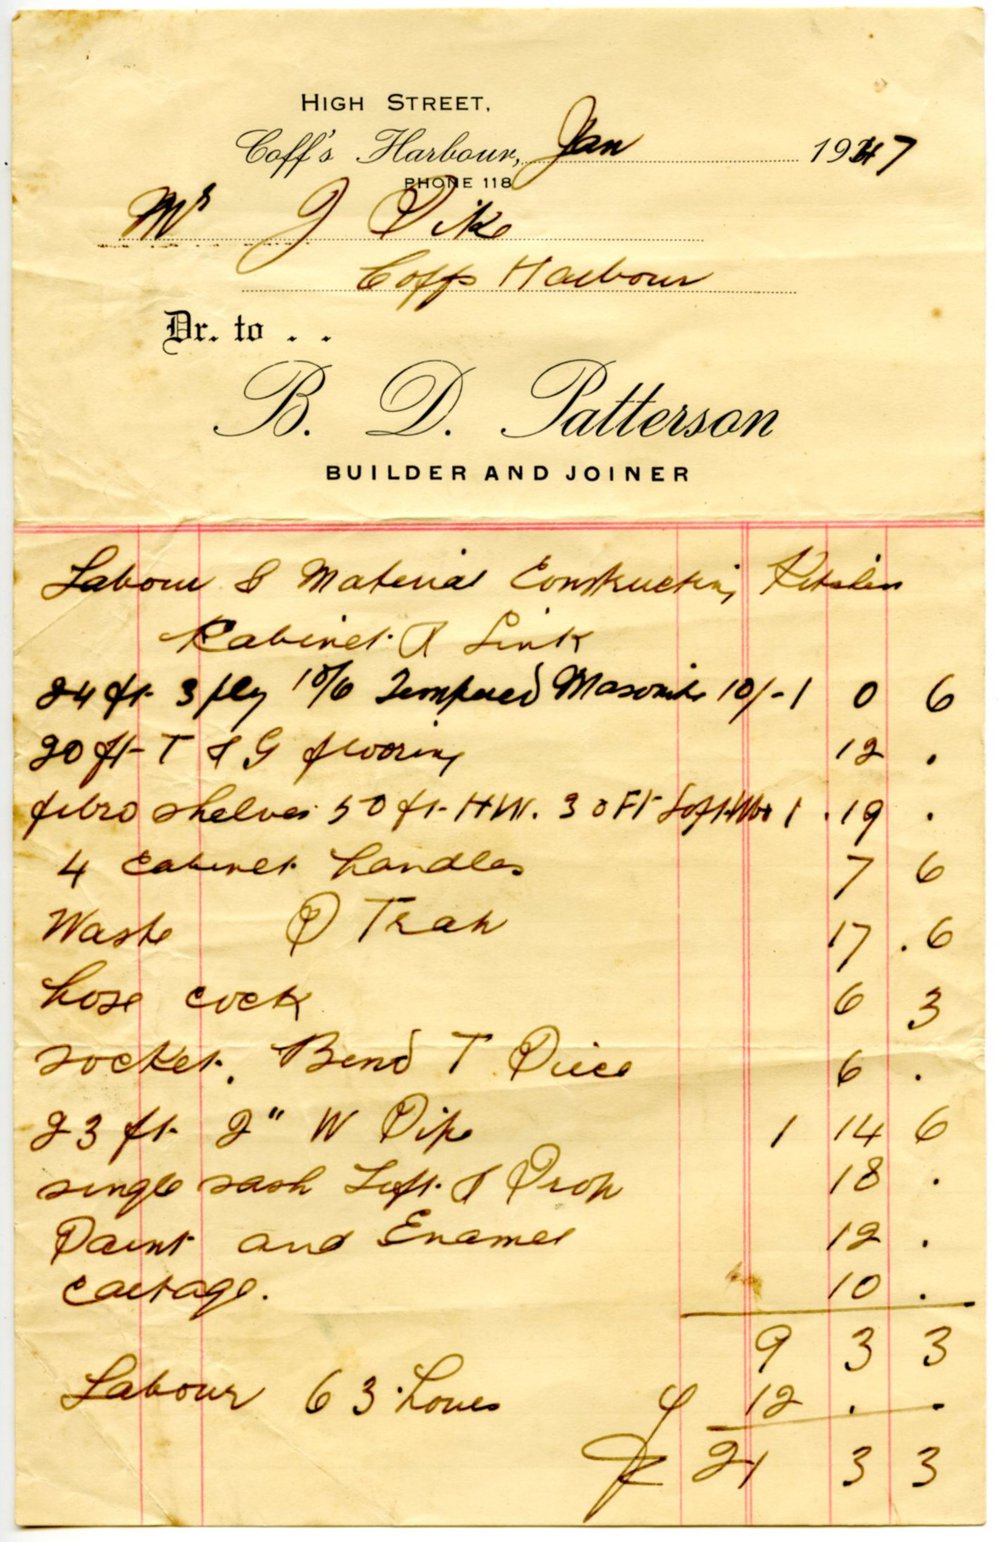 HIGH STREET,
Coff's Harbour, Jan 1947
PHONE 118
Mr J Pike
Coffs Harbour
Dr. to . .
B. D. Patterson
BUILDER AND JOINER
Labour & Material Constructing Kitchen
Cabinet & Sink
24 ft 3 ply 10/6 Tempered Masonite 10/- 1 0 6
20 ft T & G flooring 12 .
fibro shelves 50 ft HW. 30 Ft Soft Wo 1 . 19 .
4 cabinet handles 7 6
Waste & Trap 17 . 6
hose cock 6 3
socket. Bend T Piece 6 .
23 ft 2" W Pipe 1 14 6
single sash Loft & Prop 18 .
Paint and Enamel 12 .
cartage. 10 .
9 3 3
Labour 63 hours 12 . .
£ 21 3 3